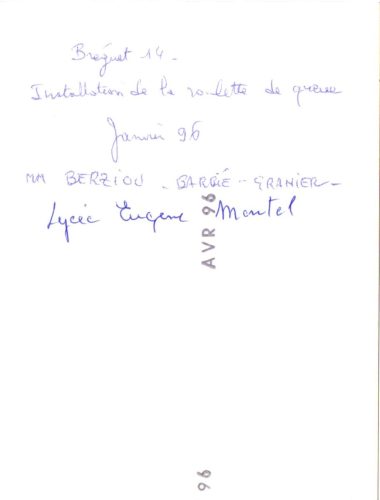 Bréguet 14.
Installation de la roulette de queue
Janvier 96
MM BERZIOU - BARBIÉ - GRANIER -
Lycée Eugène Montel
AVR 96
96